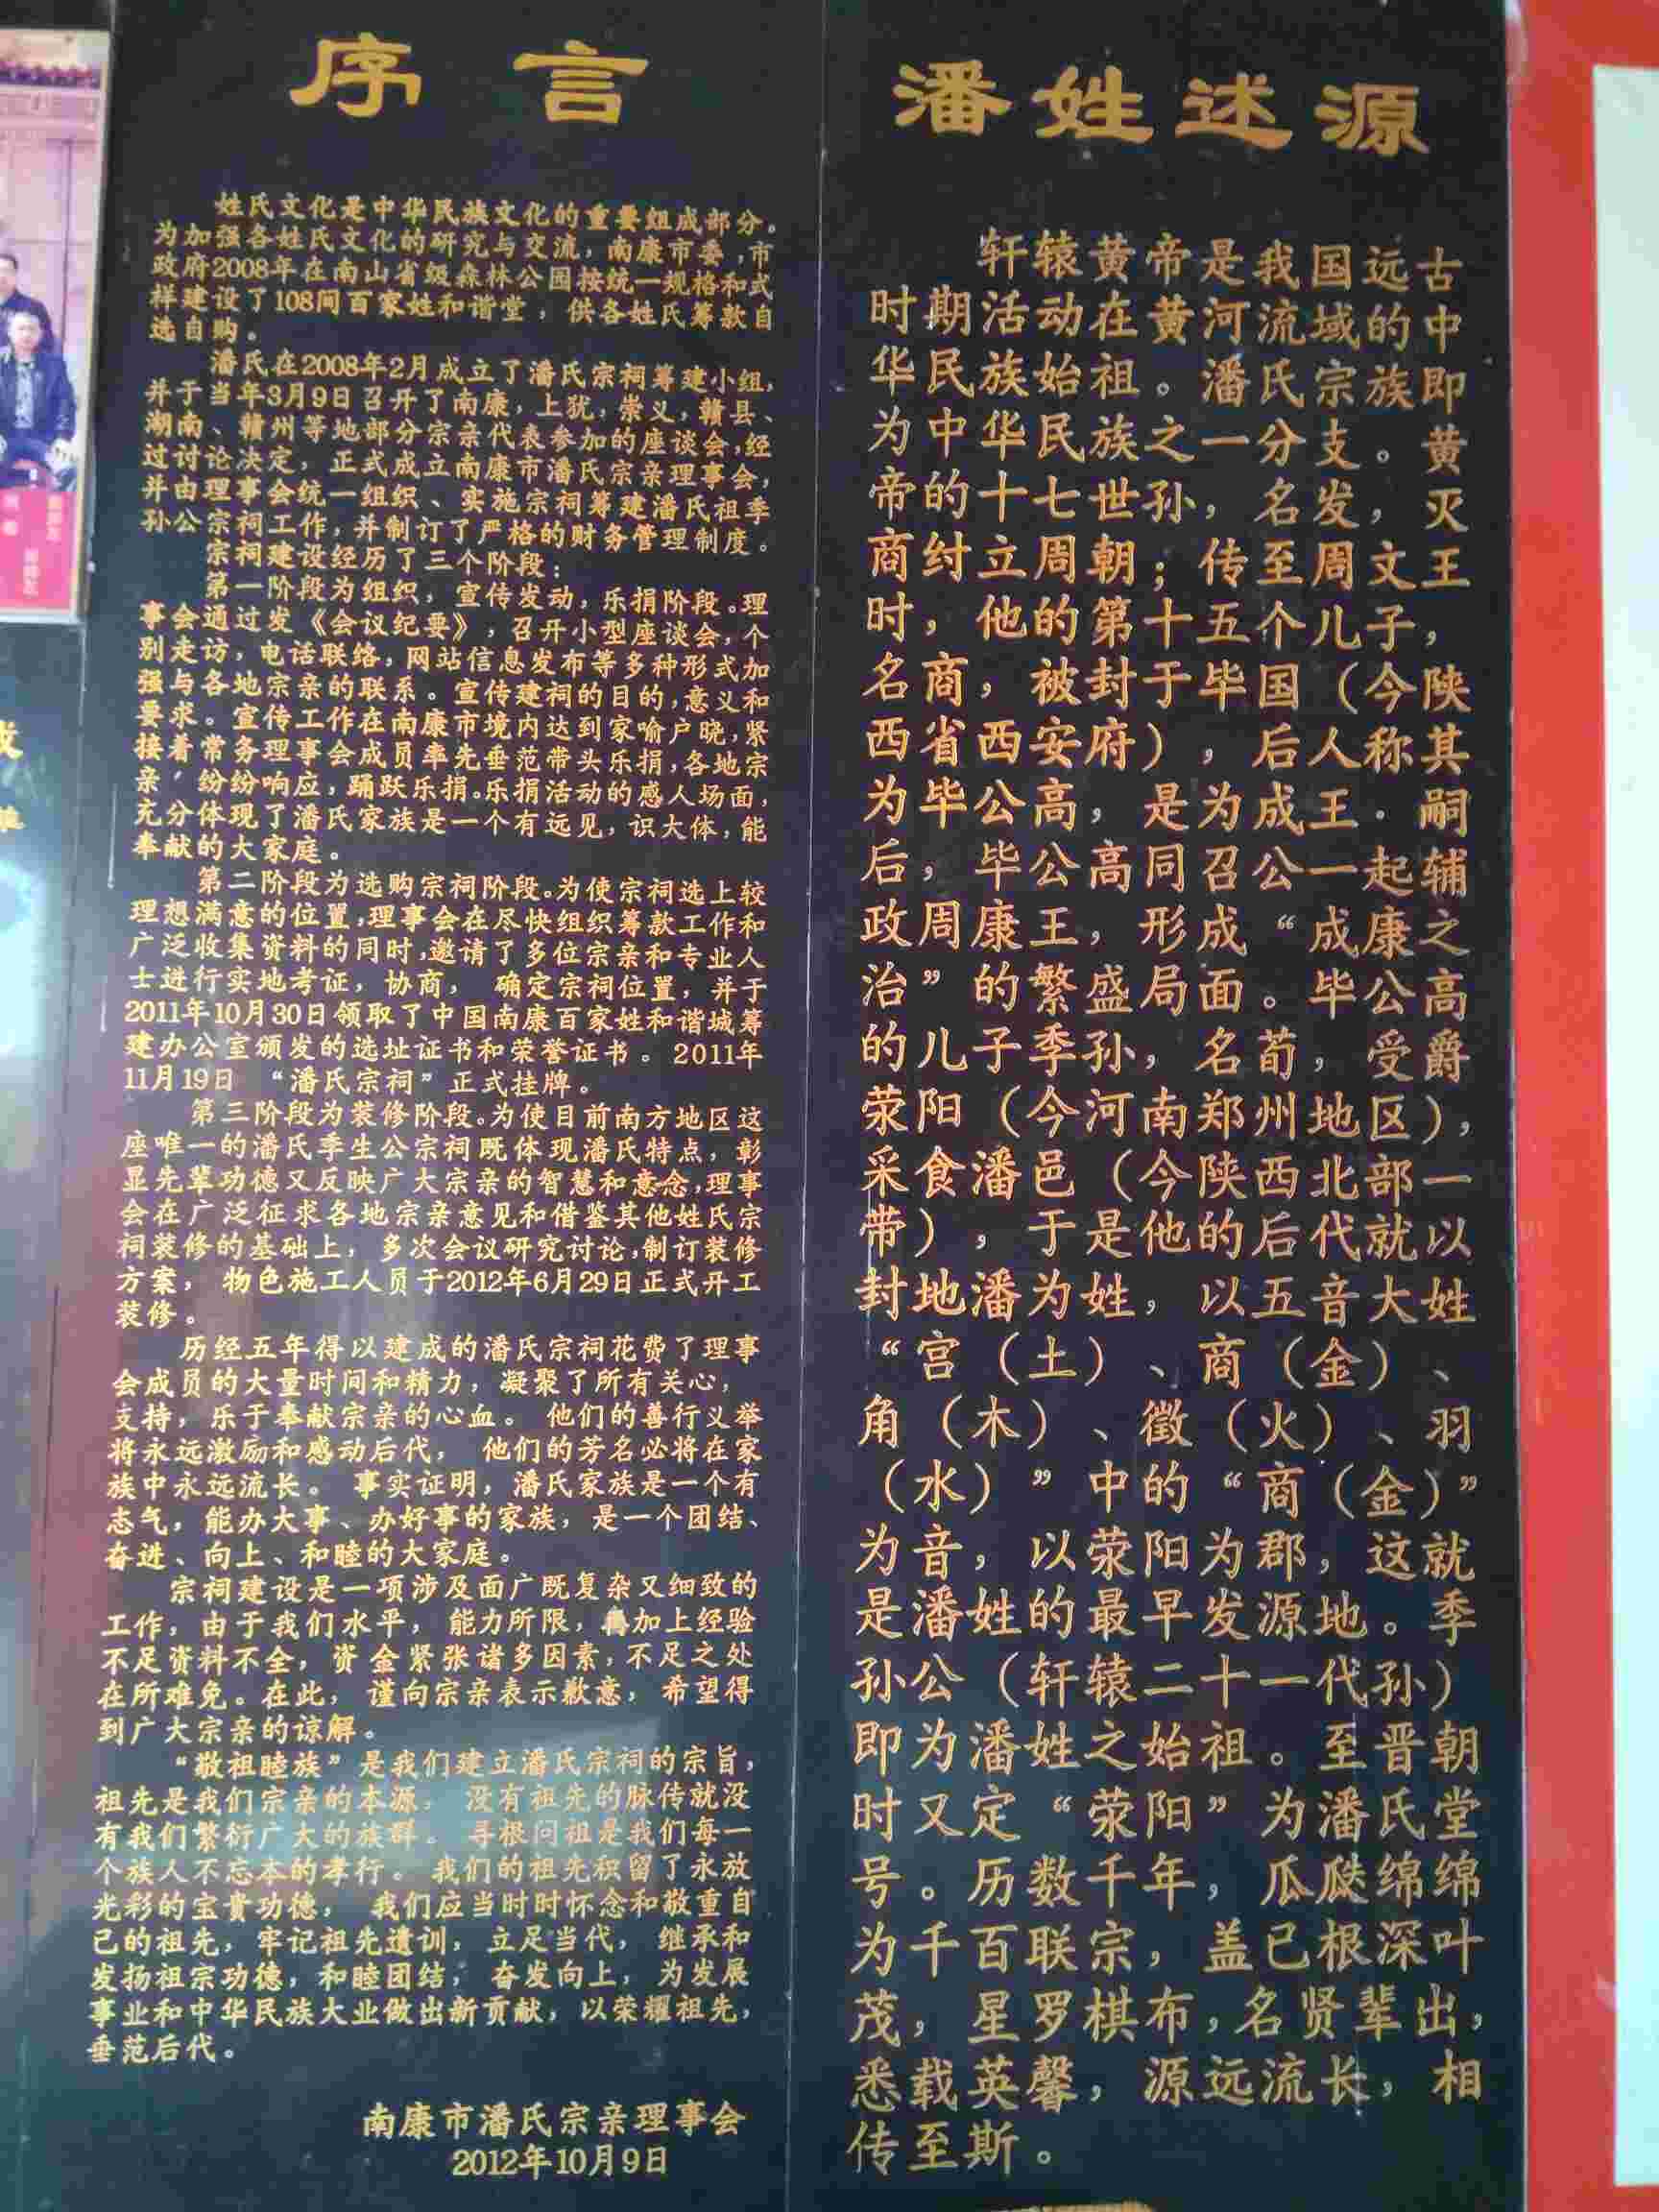 序言
姓氏文化是中华民族文化的重要组成部分。
为加强各姓氏文化的研究与交流，南康市委，市
政府2008年在南山省级森林公园按统一规格和式
样建设了108间百家姓和谐堂，供各姓氏筹款自
选自购。
潘氏在2008年2月成立了潘氏宗祠筹建小组，
并于当年3月9日召开了南康，上犹，崇义，赣县、
湖南、赣州等地部分宗亲代表参加的座谈会，经
过讨论决定，正式成立南康市潘氏宗亲理事会，
并由理事会统一组织、实施宗祠筹建潘氏祖季
孙公宗祠工作，并制订了严格的财务管理制度。
宗祠建设经历了三个阶段：
第一阶段为组织，宣传发动，乐捐阶段。理
事会通过发《会议纪要》，召开小型座谈会，个
别走访，电话联络，网站信息发布等多种形式加
强与各地宗亲的联系。宣传建祠的目的，意义和
要求。宣传工作在南康市境内达到家喻户晓，紧
接着常务理事会成员率先垂范带头乐捐，各地宗
亲，纷纷响应，踊跃乐捐。乐捐活动的感人场面，
充分体现了潘氏家族是一个有远见，识大体，能
奉献的大家庭。
第二阶段为选购宗祠阶段。为使宗祠选上较
理想满意的位置，理事会在尽快组织筹款工作和
广泛收集资料的同时，邀请了多位宗亲和专业人
士进行实地考证，协商，确定宗祠位置，并于
2011年10月30日领取了中国南康百家姓和谐城筹
建办公室颁发的选址证书和荣誉证书。2011年
11月19日“潘氏宗祠”正式挂牌。
第三阶段为装修阶段。为使目前南方地区这
座唯一的潘氏季生公宗祠既体现潘氏特点，彰
显先辈功德又反映广大宗亲的智慧和意念，理事
会在广泛征求各地宗亲意见和借鉴其他姓氏宗
祠装修的基础上，多次会议研究讨论，制订装修
方案，物色施工人员于2012年6月29日正式开工
装修。
历经五年得以建成的潘氏宗祠花费了理事
会成员的大量时间和精力，凝聚了所有关心，
支持，乐于奉献宗亲的心血。他们的善行义举
将永远激励和感动后代，他们的芳名必将在家
族中永远流长。事实证明，潘氏家族是一个有
志气，能办大事、办好事的家族，是一个团结、
奋进、向上、和睦的大家庭。
宗祠建设是一项涉及面广既复杂又细致的
工作，由于我们水平，能力所限，再加上经验
不足资料不全，资金紧张诸多因素，不足之处
在所难免。在此，谨向宗亲表示歉意，希望得
到广大宗亲的谅解。
“敬祖睦族”是我们建立潘氏宗祠的宗旨，
祖先是我们宗亲的本源。没有祖先的脉传就没
有我们繁衍广大的族群。寻根问祖是我们每一
个族人不忘本的孝行。我们的祖先积留了永放
光彩的宝贵功德，我们应当时时怀念和敬重自
己的祖先，牢记祖先遗训，立足当代，继承和
发扬祖宗功德，和睦团结，奋发向上，为发展
事业和中华民族大业做出新贡献，以荣耀祖先，
垂范后代。
南康市潘氏宗亲理事会
2012年10月9日
潘姓述源
轩辕黄帝是我国远古
时期活动在黄河流域的中
华民族始祖。潘氏宗族即
为中华民族之一分支。黄
帝的十七世孙，名发，灭
商纣立周朝；传至周文王
时，他的第十五个儿子，
名商，被封于毕国（今陕
西省西安府），后人称其
为毕公高，是为成王．嗣
后，毕公高同召公一起辅
政周康王，形成“成康之
治”的繁盛局面。毕公高
的儿子季孙，名荀，受爵
荥阳（今河南郑州地区），
采食潘邑（今陕西北部一
带），于是他的后代就以
封地潘为姓，以五音大姓
“宫（土）、商（金）、
角（木）、徵（火）、羽
（水）”中的“商（金）”
为音，以荥阳为郡，这就
是潘姓的最早发源地。季
孙公（轩辕二十一代孙）
即为潘姓之始祖。至晋朝
时又定“荥阳”为潘氏堂
号。历数千年，瓜瓞绵绵
为千百联宗，盖已根深叶
茂，星罗棋布，名贤辈出，
悉载英馨，源远流长，相
传至斯。